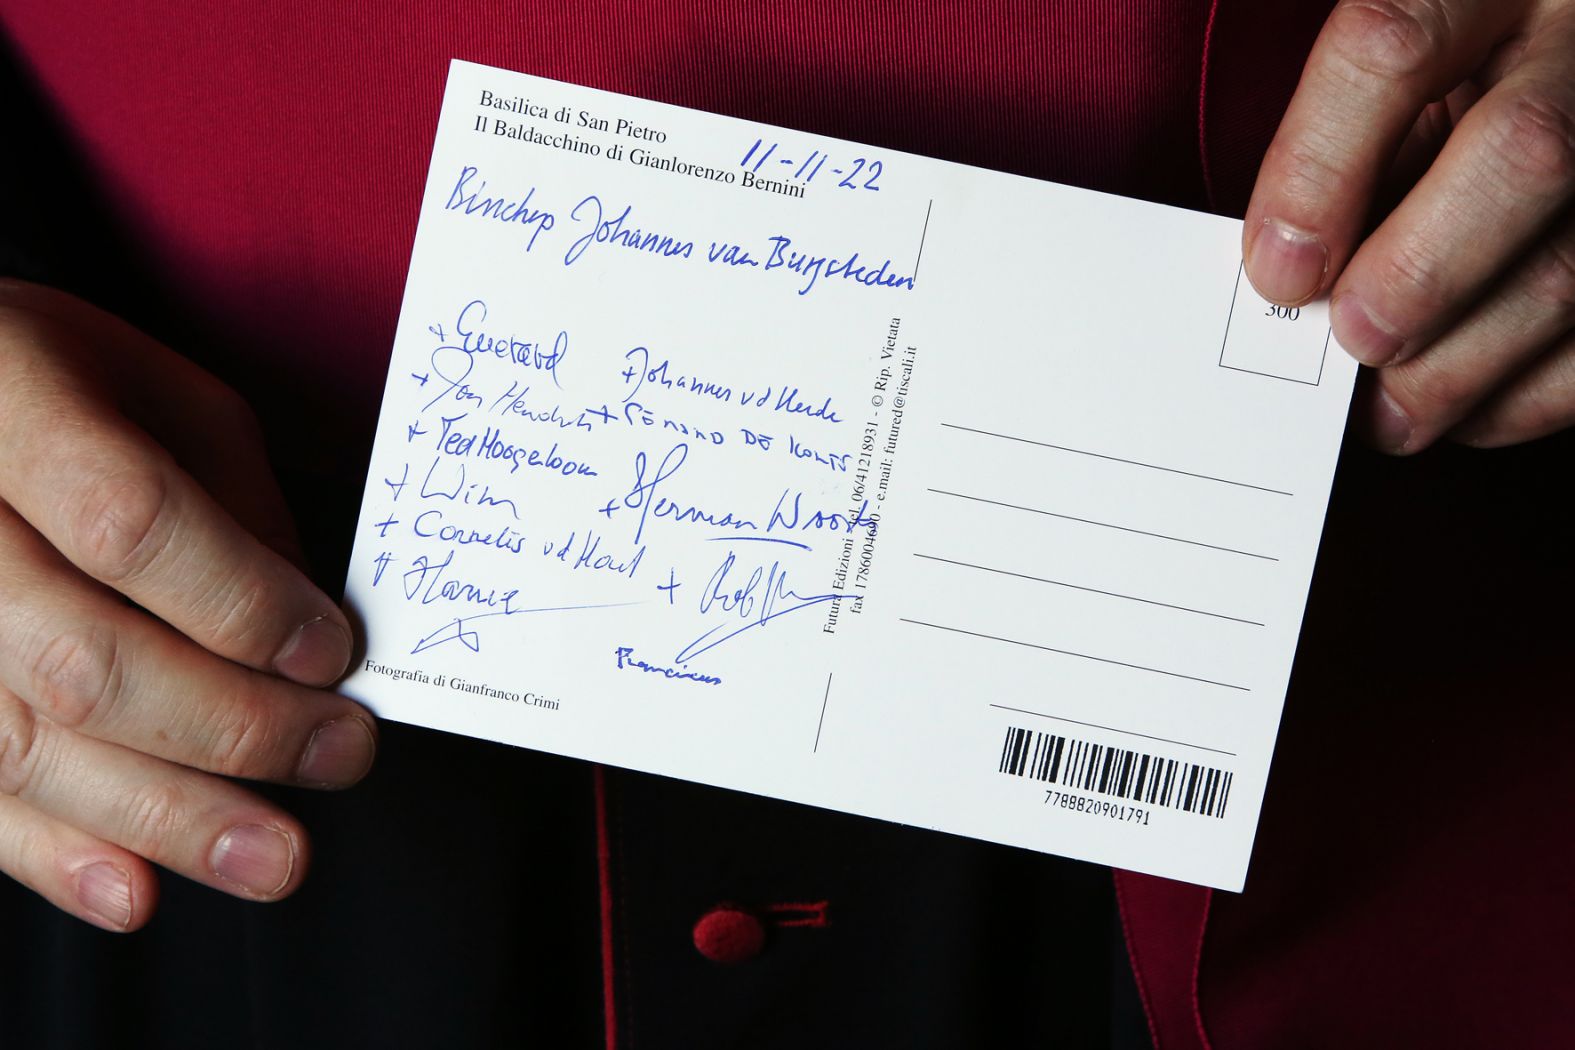 Basilica di San Pietro
Il Baldacchino di Gianlorenzo Bernini
11-11-22
Johannes van Burgsteden
+ Gerard
+ Johannes vd Hende
+ Jan Hendriks
+ DE KORTE
+ Ted Hoogenboom
+ Wim
+ Herman Woorts
+ Cornelis vd Hout
+ Rob
Franciscus
Fotografia di Gianfranco Crimi
Futura Edizioni - tel. 06/41218931 - © Rip. Vietata
fax 1786004690 - e.mail: futured@tiscali.it
300
7788820901791